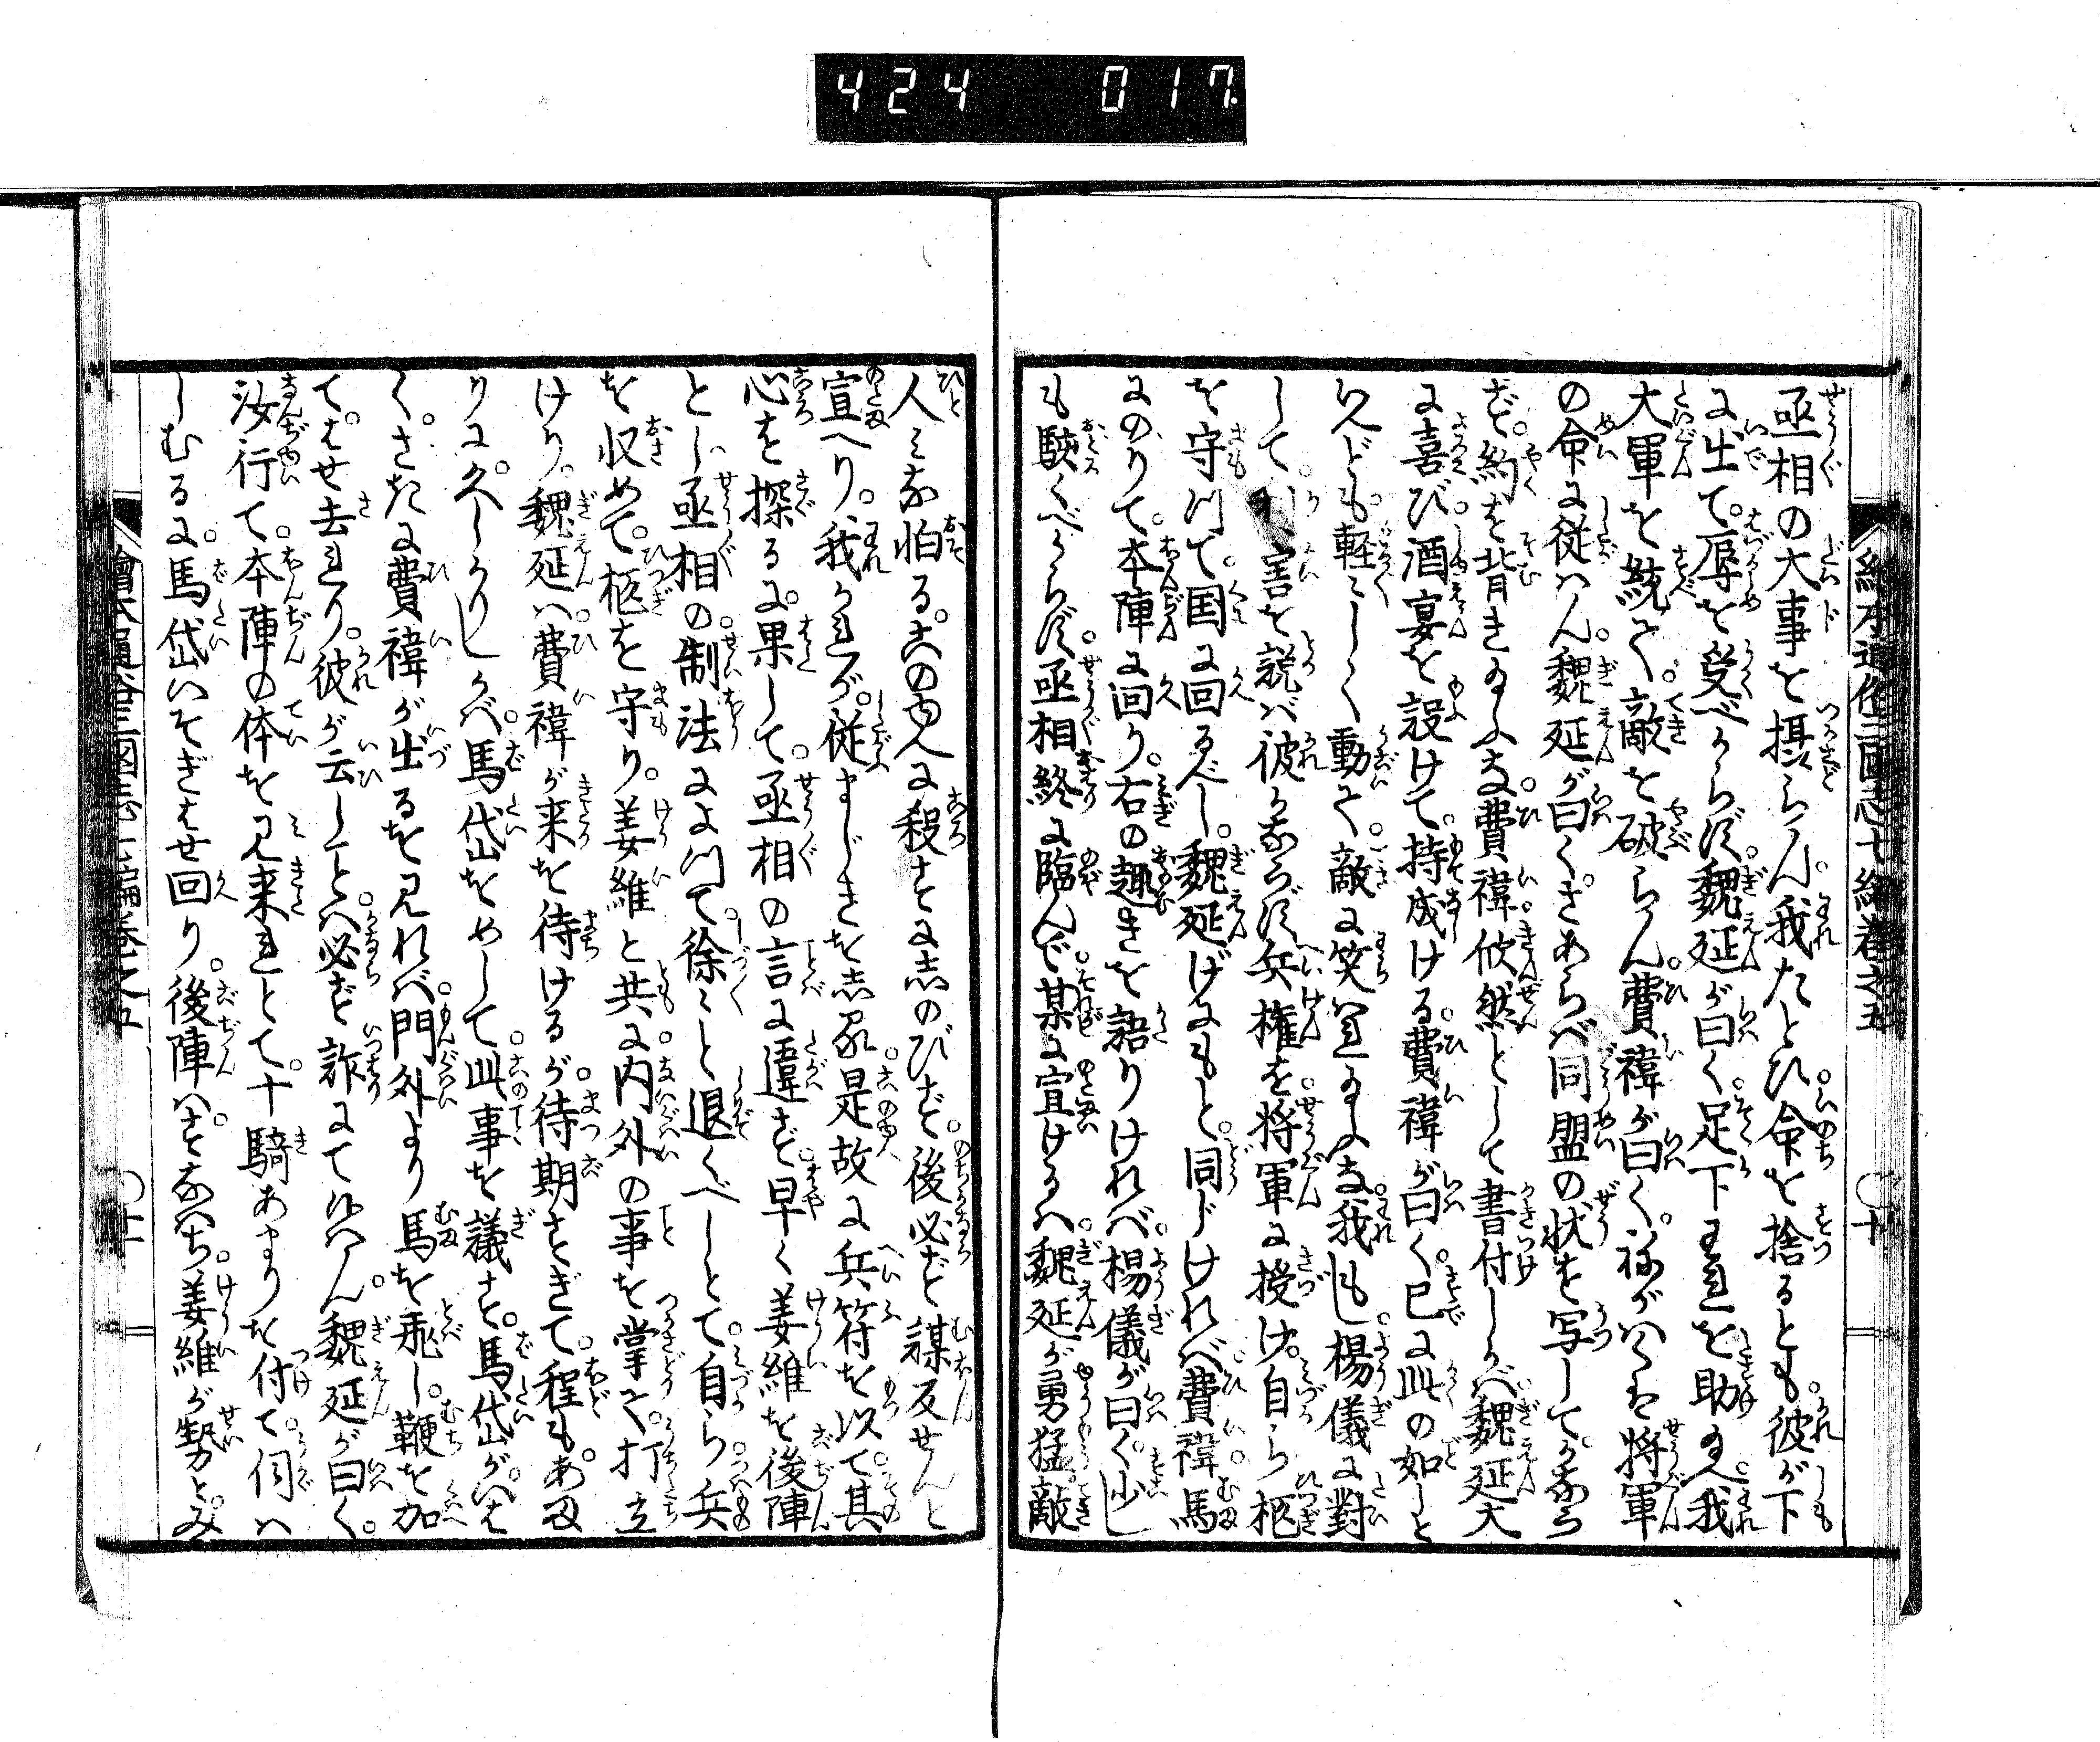 424 017
絵本通俗三国志七編巻之五 〇十
丞相の大事を摂らん。我たとひ命を捨るとも。彼が下
に出て。辱を受べからず。魏延が曰く。足下われを助給へ。我
大軍を統て。敵を破らん。費禕が曰く。ねがはくは将軍
の命に従はん。魏延が曰く。さあらば同盟の状を写して。かなら
ず。約を背き給ふな。費禕。欣然として書付しかば。魏延大
に喜び。酒宴を設けて。持成ける。費禕が曰く。已に此の如しと
いへども。軽々しく動て。敵に笑れ給ふな。我もし。楊儀に対
して。利害を説ば彼かならず。兵権を。将軍に授け。自ら柩
を守つて。国に回るべし。魏延げにもと。同じければ。費禕。馬
にのりて。本陣に回り。右の趣きを語りければ。楊儀が曰く。少し
も駭くべからず。丞相終に臨んで。某に宣けるは。魏延が勇猛敵
人みな怕る。この由へに殺すに志のびず。後必ず謀反せんと
宣へり。我かれが。従まじきを志る。是故に兵符を以て。其
心を探るに。果して。丞相の言に違ず。早く姜維を後陣
とし。丞相の制法によつて。徐々と退くべしとて。自ら兵
を収めて。柩を守り。姜維と共に。内外の事を掌て。打立
けり。魏延は。費禕が来を待けるが。待期すぎて。程もあま
りに。久しかりしかば。馬岱をめして。此事を議す。馬岱が。いは
く。さきに費禕が出るを見れば。門外より馬を飛し。鞭を加
て。はせ去れり。彼が云しことは。必ず詐にて候はん。魏延が曰く。
汝行て。本陣の体を見来れとて。十騎あまりを付て。伺は
しむるに。馬岱いそぎはせ回り。後陣は。すなはち。姜維が勢とみ
絵本通俗三国志七編巻之五